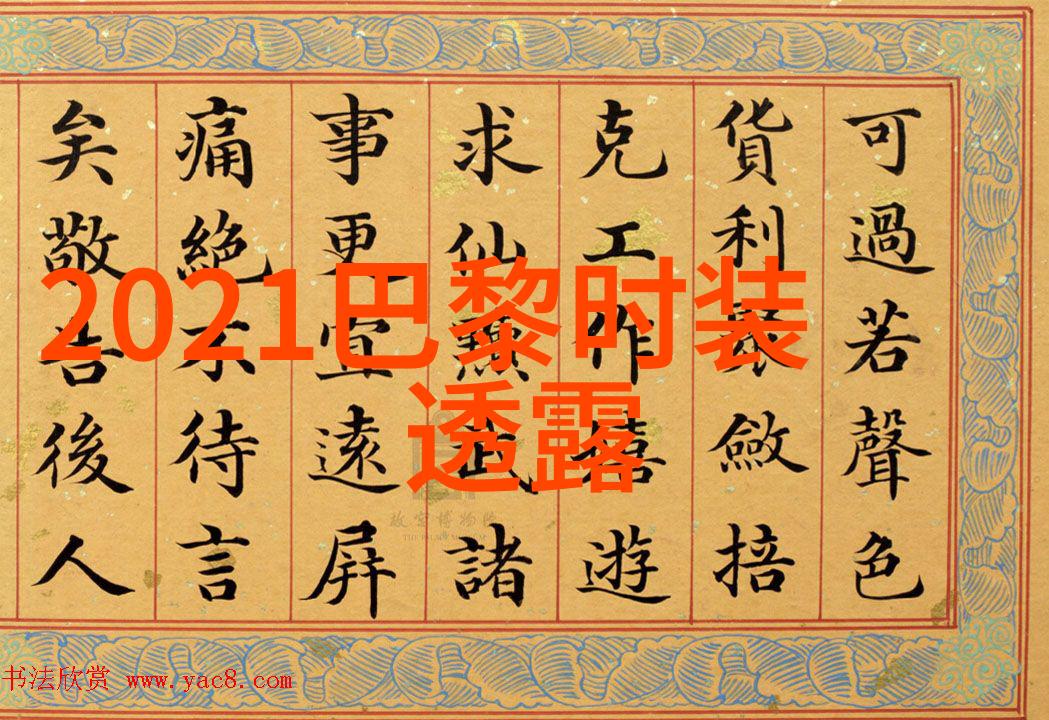 2021巴黎时装
透露
可過若聲色
貨利聚斂掊
克工作遊
求仙武諸
事更宜遠屏
痛絕不待言
矣敬告後人
故宮博物院
书法欣赏 www.yac8.com